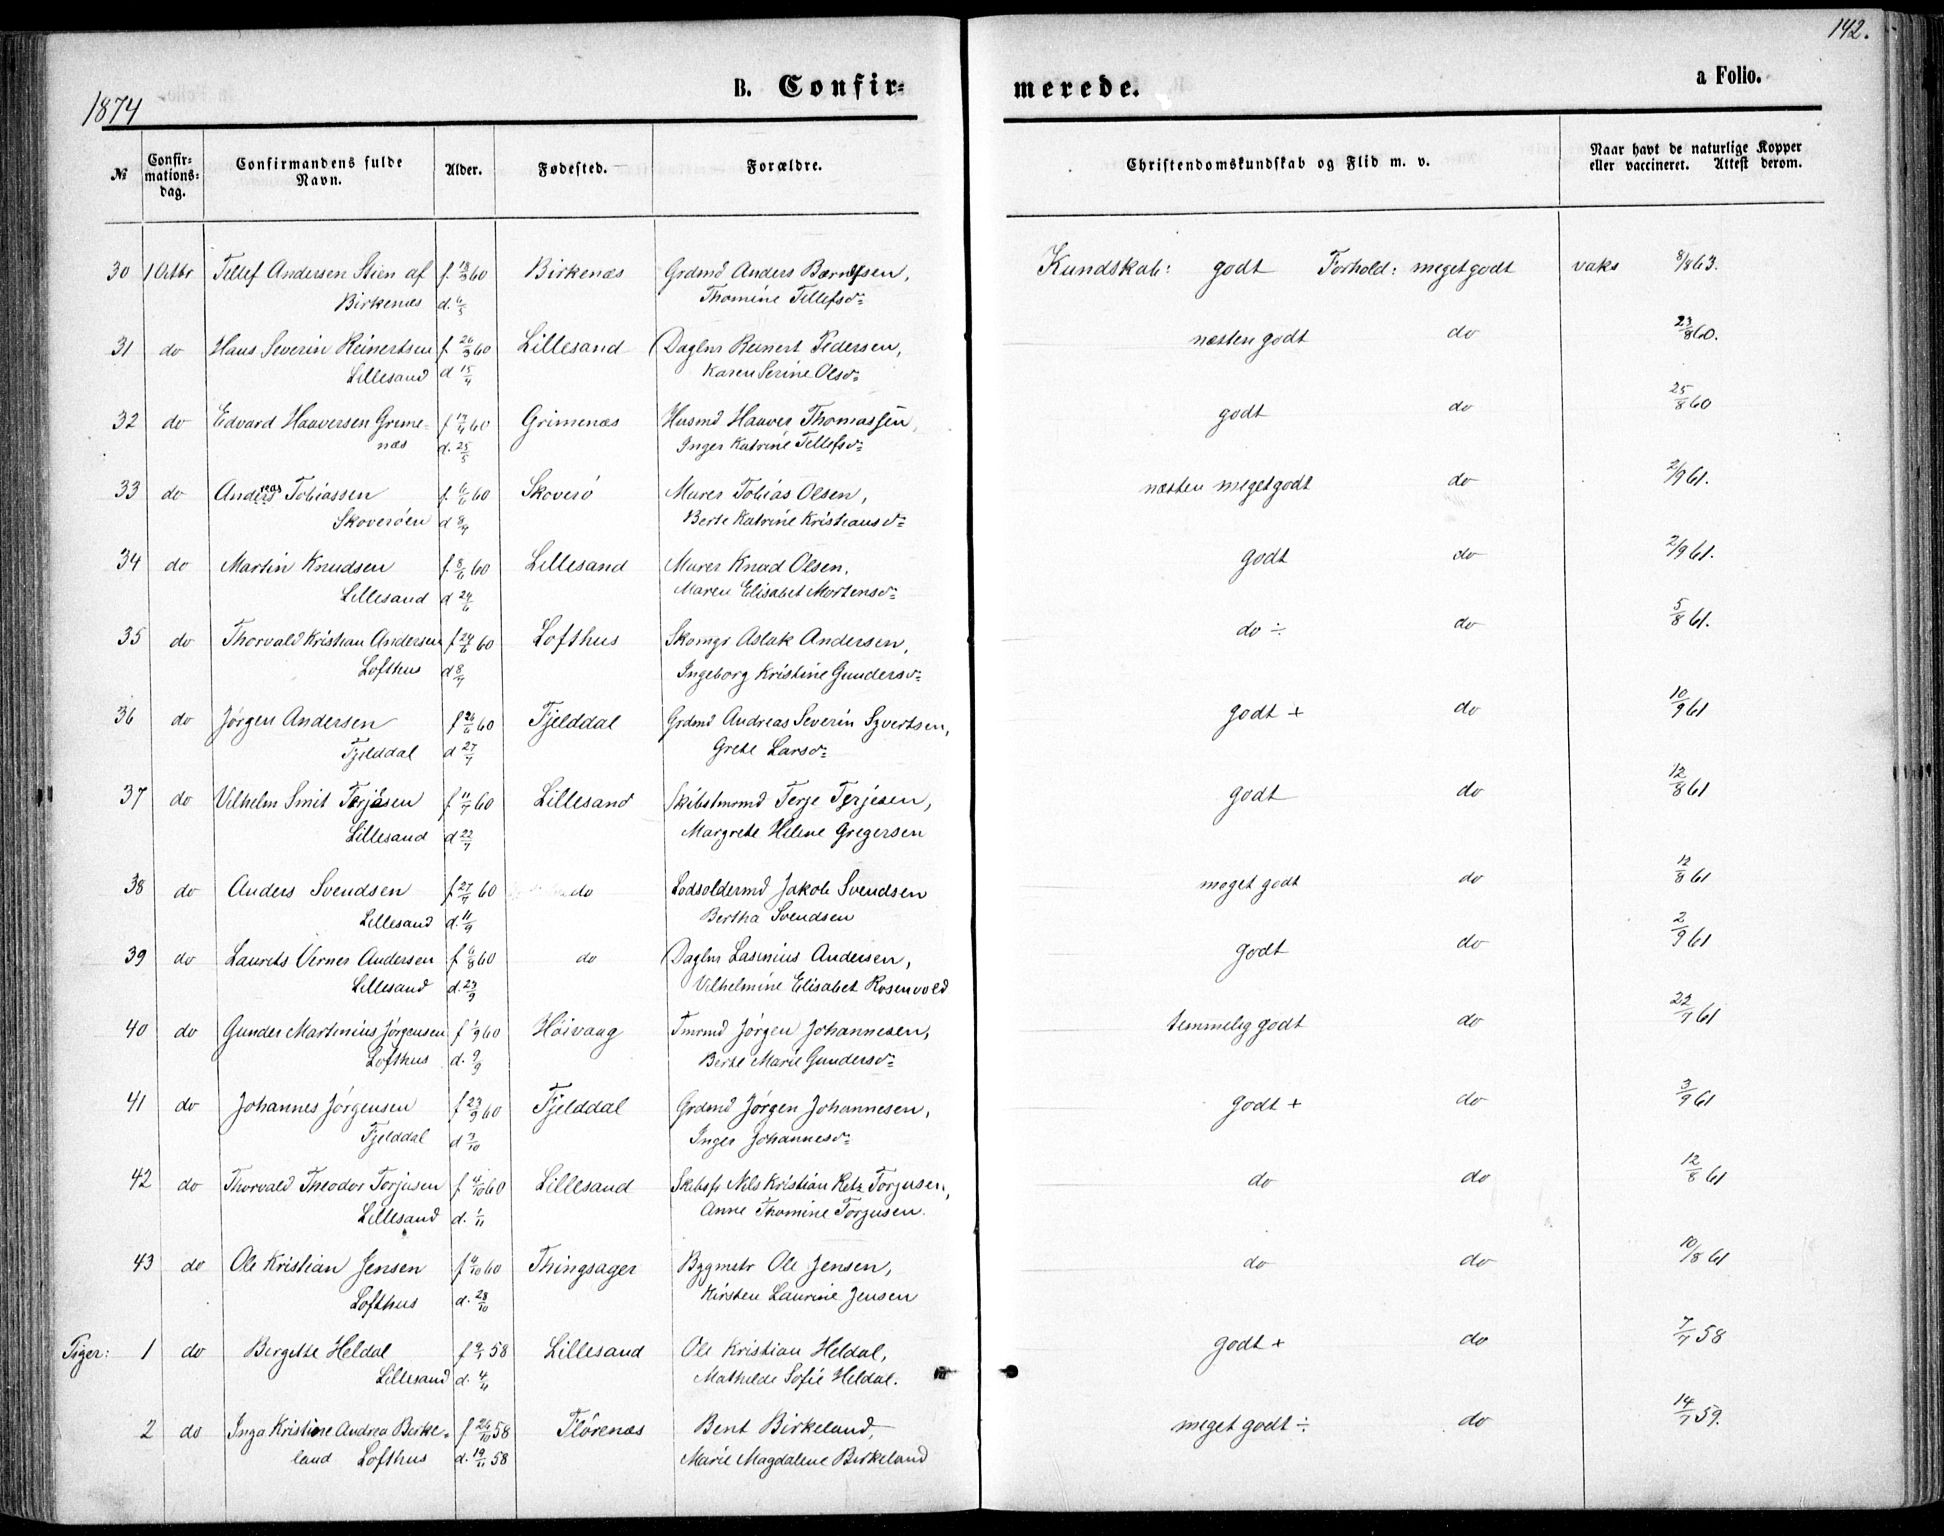 142.
B. Confir-
merede.
a Folio.
1874
№
Confir-
mations-
dag.
Confirmandens fulde
Navn.
Alder.
Fødested.
Forældre.
Christendomskundskab og Flid m. v.
Naar havt de naturlige Kopper
eller vaccineret. Attest derom.
30 1 Octbr Tellef Andersen Stien af f 18/3 60 Birkenæs Grdmd Anders Bærntsen, Kundskab: godt Forhold: meget godt vaks 8/8 63.
Birkenæs d. 6/5 Thomine Tellefsd=
31 do Hans Severin Reinertsen f. 26/3 60 Lillesand Daglnr Reinert Pedersen, næsten godt do 23/8 60.
Lillesand d 15/4 Karen Serine Olsd=
32 do Edvard Haaversen Grime- f 17/4 60 Grimenæs Husmd Haaver Thomassen, godt do 25/8 60
næs d. 25/5 Inger Katrine Tellefsd=
33 do Andreas Tobiassen f. 6/6 60 Skoverö Murer Tobias Olsen, næsten meget godt do 2/9 61.
Skoveröen d 8/7 Berte Katrine Kristiansd=
34 do Martin Knudsen f. 8/6 60 Lillesand Murer Knud Olsen, godt do 2/9 61.
Lillesand d 24/6 Maren Elisabet Mortensd=
35 do Thorvald Kristian Andersen f 24/6 60 Lofthus Skomgr Aslak Andersen, do ÷ do 5/8 61.
Lofthus d 8/7 Ingeborg Kristine Gundersd=
36 do Jørgen Andersen f 26/6 60 Fjelddal Grdmd Andreas Severin Syvertsen, godt + do 10/9 61
Fjelddal d 27/7 Grete Larsd=
37 do Vilhelm Smit Terjesen f 11/7 60 Lillesand Skibstmrmd Terje Terjesen, godt do 12/8 61
Lillesand d 22/7 Margrete Helene Gregersen
38 do Anders Svendsen f 27/7 60 do Lodsoldermd Jakob Svendsen meget godt do 12/8 61
Lillesand d. 11/9 Bertha Svendsen
39 do Laurits Verner Andersen f 6/8 60 do Daglnr Lasinius Andersen, godt do 2/9 61
Lillesand d. 23/9 Vilhelmine Elisabet Rosenvold
40 do Gunder Martinius Jørgensen f 1/9 60 Höivaag Tmrmd Jørgen Johannesen, temmelig godt do 22/7 61
Lofthus d. 9/9 Berte Marie Gundersd=
41 do Johannes Jørgensen f 23/9 60 Fjelddal Grdmd Jørgen Johannesen, godt + do 3/9 61
Fjelddal d 3/10 Inger Johannesd=
42 do Thorvald Theodor Torjusen f 4/10 60 Lillesand Skibsfr Nils Kristian Retz Torjusen, do do 12/8 61
Lillesand d. 1/11 Anne Thomine Torjusen.
43 do Ole Kristian Jensen f 4/10 60 Thingsager Bygmstr Ole Jensen, do do 10/8 61
Lofthus d. 28/10 Kirsten Laurine Jensen
Piger: 1 do Bergette Heldal f 9/1 58 Lillesand Ole Kristian Heldal, godt + do 7/7 58
Lillesand d. 4/4 Mathilde Sofie Heldal.
2 do Inga Kristine Andrea Birke- f 26/10 58 Flörenæs Bent Birkeland, meget godt ÷ do 14/7 59.
land Lofthus d. 19/11 58 Marie Magdalene Birkeland